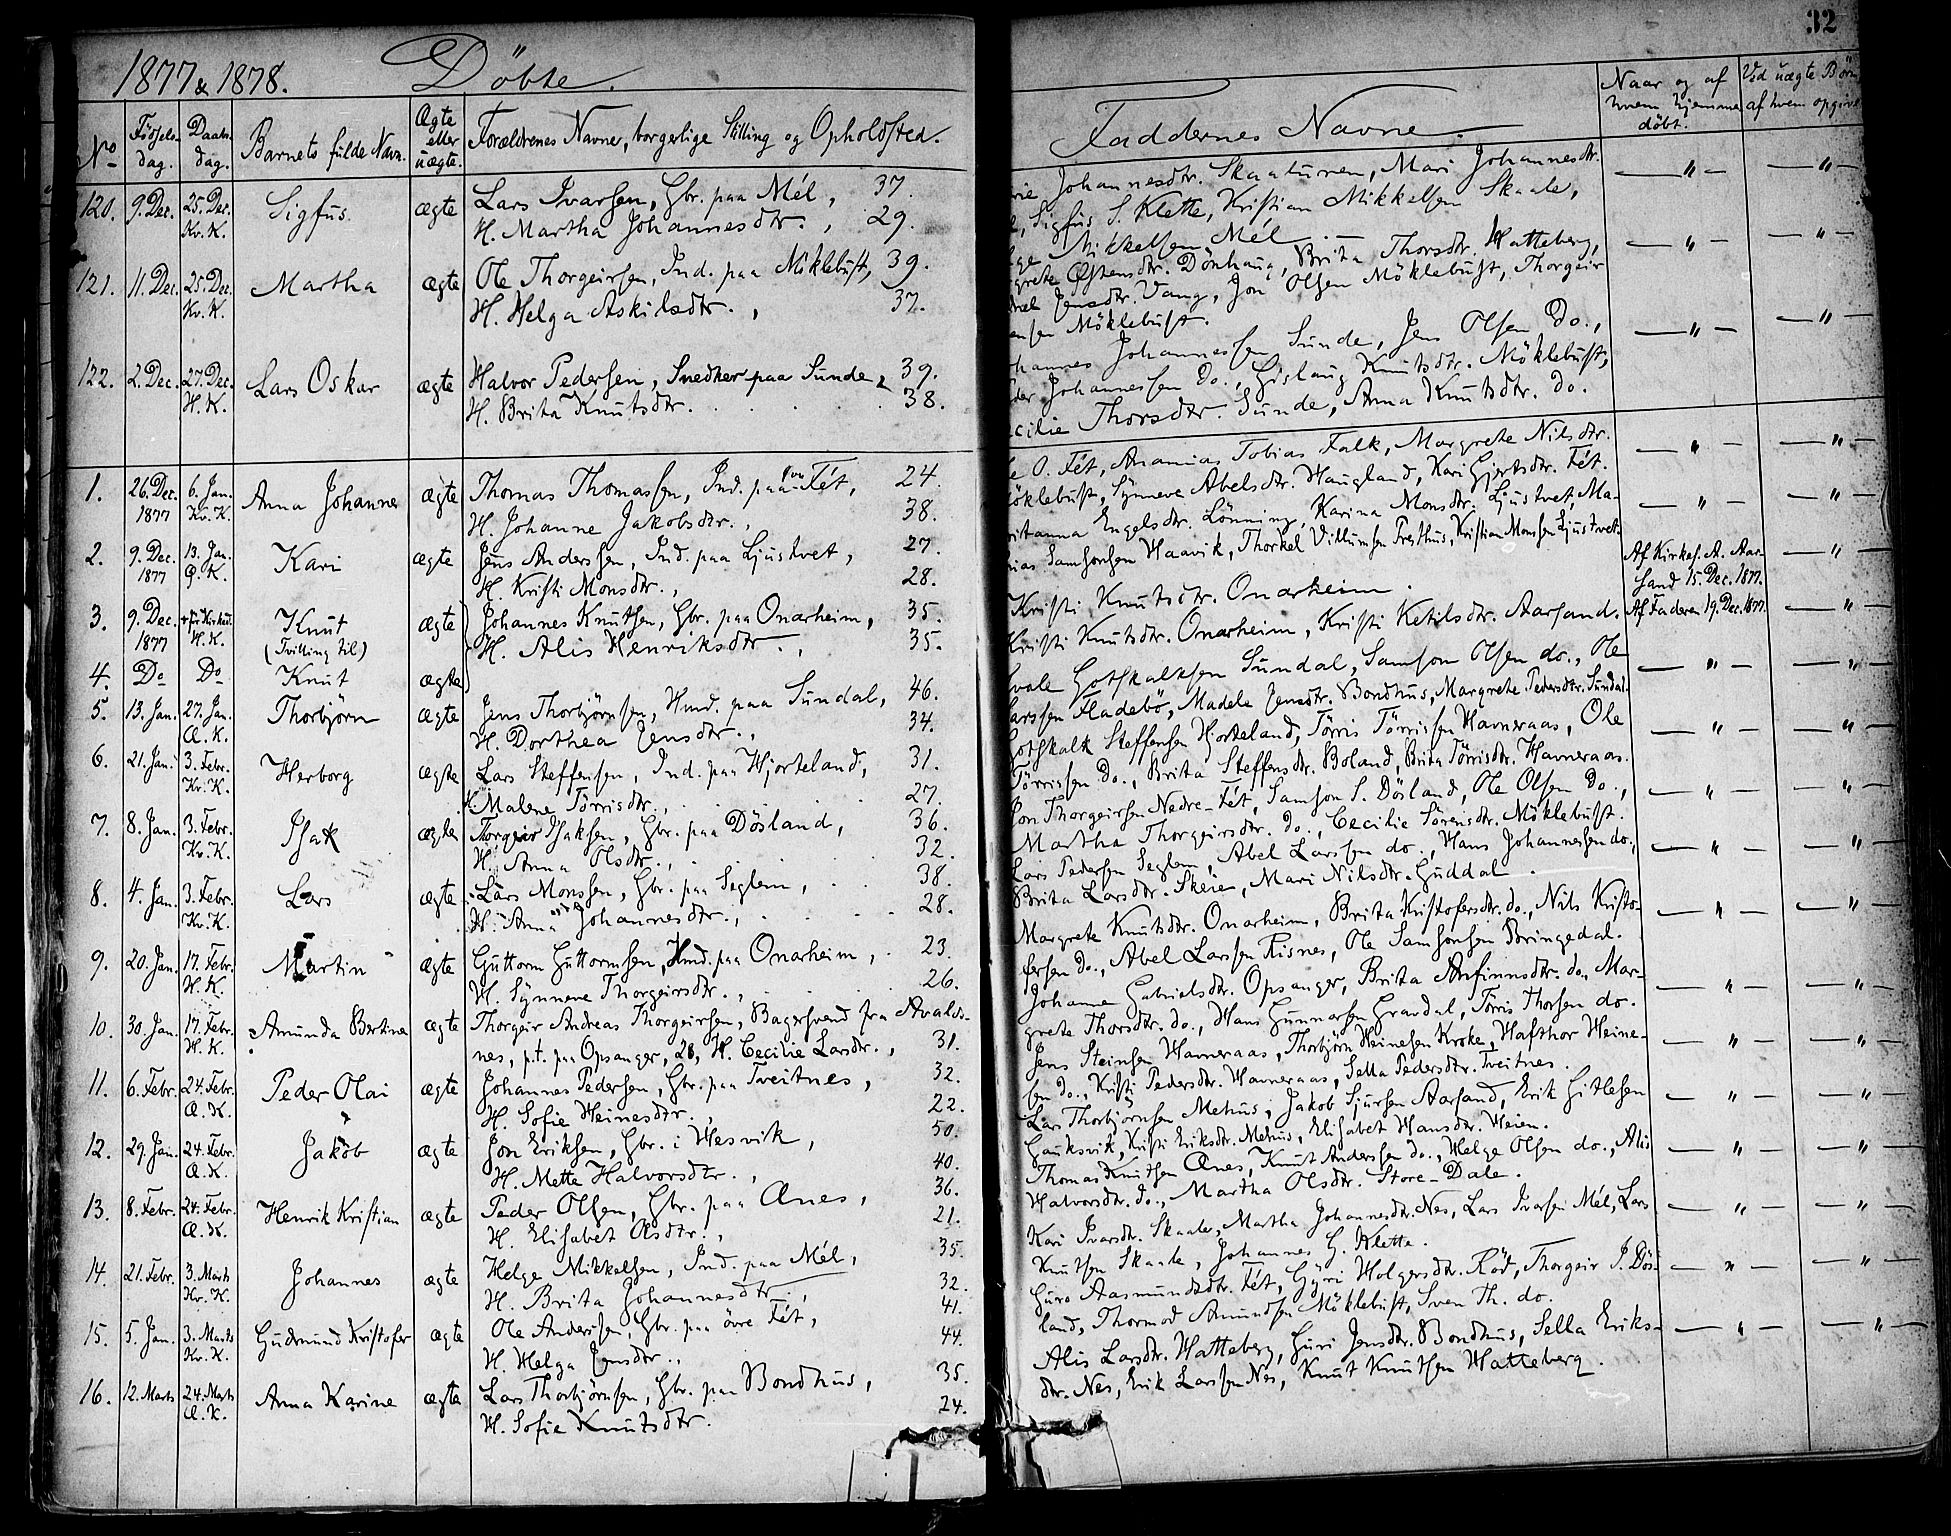 1877 & 1878. Döbte.
No
Födsels-
dag.
Daabs-
dag.
Barnets fulde Navn.
Ægte
eller
uægte.
Forældrenes Navne, borgerlige Stilling og Opholdssted.
120. 9. Dec. 25. Dec. Sigfus. ægte Lars Ivarsen, Gbr. paa Mél, 37.
Kv. K. H. Martha Johannesdtr., 29.
121. 11. Dec. 25. Dec. Martha ægte Ole Thorgeirsen, Ind. paa Möklebust, 39.
Kv. K. H. Helga Askilsdtr., 37.
122. 2. Dec. 27. Dec. Lars Oskar ægte Halvor Pedersen, Snedker paa Sunde, 39.
H. K. H. Brita Knutsdtr. 38.
1. 26. Dec. 6. Jan. Anna Johanne ægte Thomas Thomassen, Ind. paa Fét, 24.
1877 Kv. K. H. Johanne Jakobsdtr., 38.
2. 9. Dec. 13. Jan. Kari ægte Jens Anderssen, Ind. paa Ljustvet, 27.
1877 Q. K. H. Kristi Monsdtr., 28.
3. 9. Dec. Knut ægte Johannes Knutsen, Gbr. paa Onarheim, 35.
1877 H. K. (Tvilling til) H. Alis Henriksdtr., 35.
4. Do Do Knut ægte
5. 13. Jan. 27. Jan. Thorbjörn ægte Jens Thorbjörnsen, Hmd. paa Sundal, 46.
Æ. K. H. Dorthea Jensdtr., 34.
6. 21. Jan. 3. Febr. Herborg ægte Lars Steffensen, Ind. paa Hjorteland, 31.
Kv. K. H. Malene Törrisdtr., 27.
7. 8. Jan. 3. Febr. Isak ægte Torgeir Isaksen, Gbr. paa Dösland, 36.
Kv. K. H. Anna Olsdtr., 32.
8. 4. Jan. 3. Febr. Lars ægte Lars Monssen, Gbr. paa Seglem, 38.
Kv. K. H. Anna Johannesdtr., 28.
9. 20. Jan. 17. Febr. Martin ægte Guttorm Guttormsen, Hmd. paa Onarheim, 23.
H. K. H. Synneve Thorgeirsdtr., 26.
10. 30. Jan. 17. Febr. Amunda Bertine ægte Thorgeir Andreas Thorgeirsen, Bagersvend fra Avalds-
H. K. nes, p.t. paa Opsanger, 28, H. Cecilie Larsdtr., 31.
11. 6. Febr. 24. Febr. Peder Olai ægte Johannes Pedersen, Gbr. paa Tveitnes, 32.
Æ. K. H. Sofie Heinesdtr., 22.
12. 29. Jan. 24. Febr. Jakob ægte Jon Eriksen, Gbr. i Hesvik, 50.
Æ. K. H. Mette Halvorsdtr., 40.
13. 8. Febr. 24. Febr. Henrik Kristian ægte Peder Olsen, Gbr. paa Ænes, 36.
Æ. K. H. Elisabet Olsdtr., 21.
14. 21. Febr. 3. Marts Johannes ægte Helge Mikkelsen, Ind. paa Mél, 35.
Kv. K. H. Brita Johannesdtr., 32.
15. 5. Jan. 3. Marts Gudmund Kristofer ægte Ole Anderssen, Gbr. paa övre Fét, 41.
Kv. K. H. Helga Jensdtr., 44.
16. 12. Marts 24. Marts Anna Karine ægte Lars Thorbjörnsen, Gbr. paa Bondhus, 35.
Æ. K. H. Sofie Knutsdtr. 24.
32
Faddernes Navne.
Naar og af
hvem hjemme
döbt.
Ved uægte Börn
af hvem opgivet
Johannesdtr. Skaaturen, Mari Johannesdtr.
Sigfus S. Klette, Kristian Mikkelsen Skaale,
Mikkelsen Mél
Östensdtr. Dönhaug, Brita Thorsdtr. Hatteberg,
Jensdtr. Vang, Jon Olsen Möklebust, Thorgeir
Möklebust.
Johannessen Sunde, Jens Olsen Do.,
Johannessen Do., Gislaug Knutsdtr. Möklebust,
Thorsdtr. Sunde, Anna Knutsdtr. do.
O. Fét, Ananias Tobias Falk, Margrete Nilsdtr.
Möklebust, Synneve Abelsdtr. Haugland, Kari Gjertsdtr. Fét.
Engelsdtr. Lönning, Karina Monsdtr. Ljustvet, Ma-
Samsonsen Haavik, Thorkel Villumsen Fresthus, Kristian Monsen Ljustvet.
Kristi Knutsdtr. Onarheim. Af Kirkes. A. Aar-
sand 15. Dec. 1877.
Kristi Knutsdtr. Onarheim, Kristi Ketilsdtr. Aarsand. Af Faderen 19. Dec. 1877.
Gotskalksen Sundal, Samson Olsen do., Ole
Larssen Fladebö, Madele Jensdtr. Bondhus, Margrete Pedersdtr. Sundal.
Gotskalk Steffensen Hjorteland, Törris Törrissen Havneraas, Ole
Törrissen Do., Brita Steffensdtr. Boland, Brita Törrisdtr. Havneraas.
Jon Thorgeirsen Nedre-Fét, Samson S. Dösland, Ole Olsen Do.,
Martha Thorgeirsdtr. do., Cecilie Sörensdtr. Möklebust.
Lars Pedersen Seglem, Abel Larssen do., Hans Johannessen do.,
Brita Larsdtr. Skeien, Mari Nilsdtr. Guddal.
Margrete Knutsdtr. Onarheim, Brita Kristofersdtr. do., Nils Kristo-
fersen do., Abel Larssen Risnes, Ole Samsonsen Boringedal.
Johanna Gabrielsdtr. Opsanger, Brita Anfinnsdtr. do., Mar-
grete Thorsdtr. do., Hans Gunnarsen Gravdal, Törris Thorsen do.
Jens Steinsen Havneraas, Thorbjörn Heinesen Kroke, Hafthor Heine-
sen do., Kristi Pedersdtr. Havneraas, Sella Pedersdtr. Tveitnes.
Lars Thorbjörnsen Mehus, Jakob Sjursen Aarsand, Erik Gitlesen
Gauksvik, Kristi Eriksdtr. Mehus, Elisabet Hansdtr. Heien.
Thomas Knutsen Ænes, Knut Anderssen do., Helge Olsen do., Alis
Halvorsdtr. do., Martha Olsdtr. Store-Dale.
Kari Ivarsdtr. Skaale, Martha Johannesdtr. Nes, Lars Ivarsen Mél, Lars
Knutsen Skaale, Johannes G. Klette.
Guro Aasmundsdtr. Fét, Gyri Holgersdtr. Röd, Thorgeir I. Dös-
land, Thormod Amundsen Möklebust, Sven Th. do.
Alis Larsdtr. Hatteberg, Guri Jensdtr. Bondhus, Sella Eriks-
dtr. Nes, Erik Larssen Nes, Knut Knutsen Hatteberg.